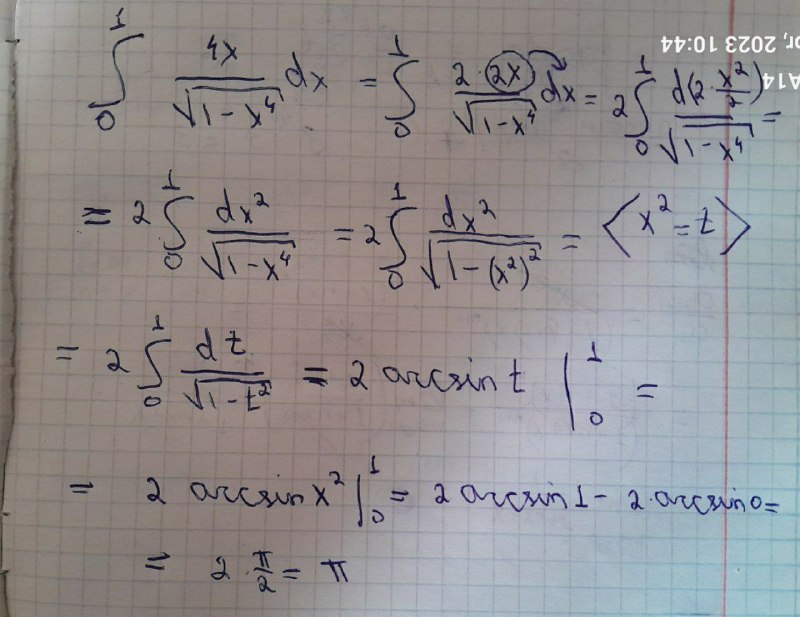 ∫₀¹ 4x/√(1-x⁴) dx = ∫₀¹ 2·2x/√(1-x⁴) dx = 2∫₀¹ d(2·x²/2)/√(1-x⁴) =
= 2∫₀¹ dx²/√(1-x⁴) = 2∫₀¹ dx²/√(1-(x²)²) = <x² = t>
= 2∫₀¹ dt/√(1-t²) = 2 arcsin t |₀¹ =
= 2 arcsin x² |₀¹ = 2 arcsin 1 - 2·arcsin 0 =
= 2·π/2 = π
, 2023 10:44
A14